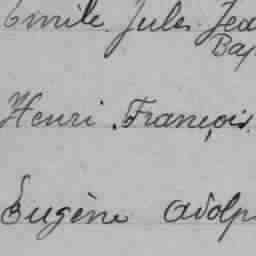 Emile Jules Jea
Bap
Henri François
Eugène Adolp